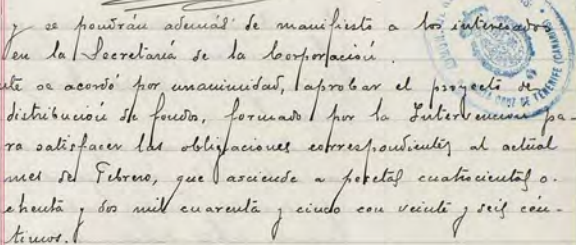 y se pondrán además de manifiesto a los interesados
en la Secretaría de la Corporación.
te se acordó por unanimidad, aprobar el proyecto de
distribución de fondos, formado por la Intervención pa-
ra satisfacer las obligaciones correspondientes al actual
mes de Febrero, que asciende a pesetas cuatrocientas o-
chenta y dos mil cuarenta y cinco con veinte y seis cén-
timos.
CRUZ DE TENERIFE (CANARIAS)